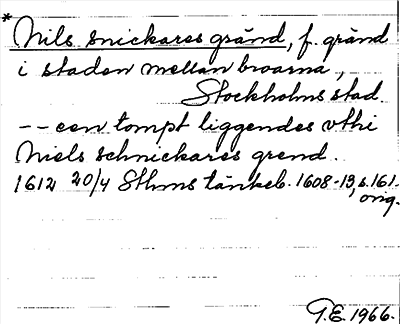 * Nils Snickares gränd, f. gränd
i staden mellan broarna,
Stockholms stad.
-- een tompt liggendes vthi
Niels schnickares grend.
1612 20/4 Sthms tänkeb. 1608-13, s. 161.
orig.
T.E. 1966.